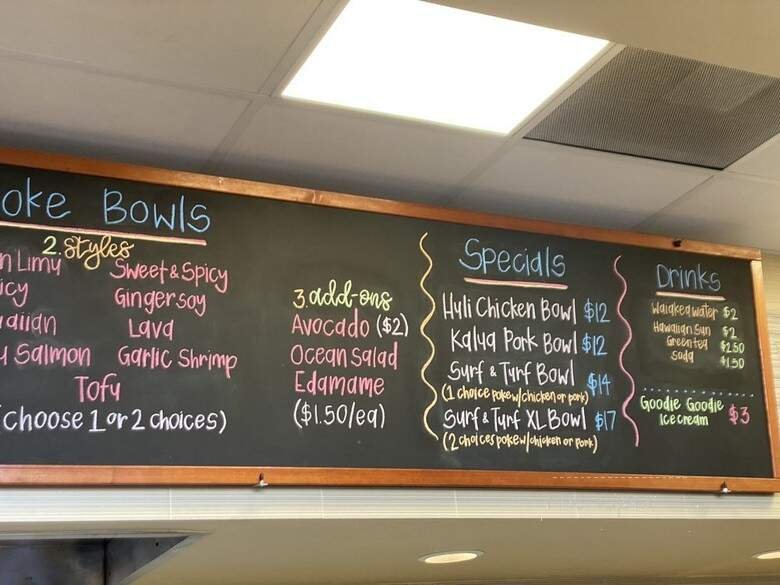 oke Bowls
2. Styles
n Limu
icy
aiian
Salmon
Sweet & Spicy
Ginger soy
Lava
Garlic Shrimp
Tofu
(choose 1 or 2 choices)
3. add-ons
Avocado ($2)
Ocean Salad
Edamame
($1.50/ea)
Specials
Huli Chicken Bowl $12
Kalua Pork Bowl $12
Surf & Turf Bowl $14
(1 choice poke w/chicken or pork)
Surf & Turf XL Bowl $17
(2 choices poke w/chicken or Pork)
Drinks
Waiakea water $2
Hawaiian Sun $2
Green tea $2.50
Soda $1.50
Goodie Goodie
Ice cream $3